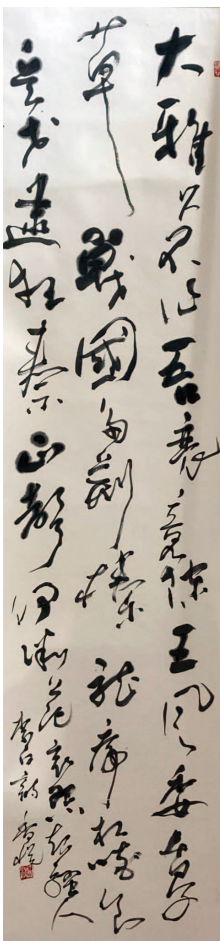 大雅久不作吾衰竟誰陳王风委蔓
草戰國多荆榛龍虎相啖食
兵戈逮狂秦正聲何微茫哀怨起騷人
李白詩